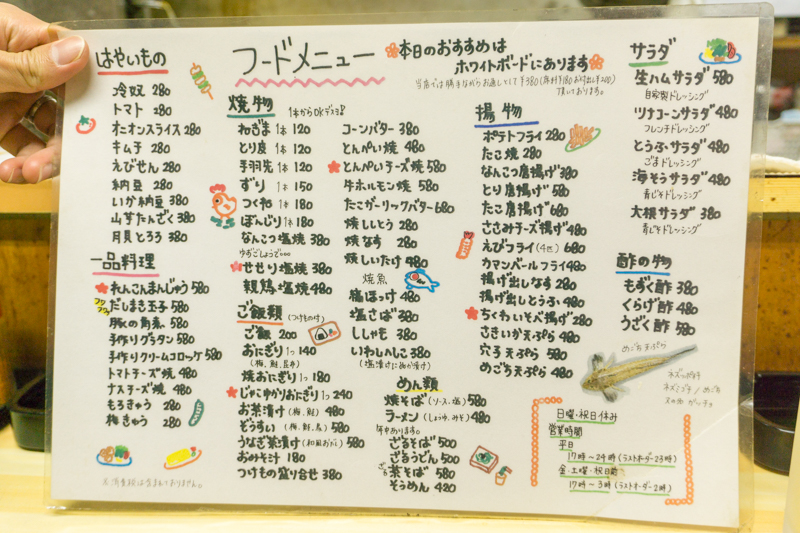 フードメニュー
本日のおすすめは
ホワイトボードにあります
はやいもの
冷奴 280
トマト 280
オニオンスライス 280
キムチ 280
えびせん 280
納豆 280
いか納豆 380
山芋たんざく 380
月見とろろ 380
一品料理
れんこんまんじゅう 580
だしまき玉子 580
豚の角煮 580
手作りグラタン 580
手作りクリームコロッケ 580
トマトチーズ焼 480
ナスチーズ焼 480
もろきゅう 280
梅きゅう 280
焼物
1本からOKデス
ねぎま 1本 120
とり皮 1本 120
手羽先 1本 120
ずり 1本 150
つくね 1本 180
ぼんじり 1本 180
なんこつ塩焼 380
ゆずごしょうで…
せせり塩焼 380
親鳥塩焼 480
ご飯類 (つけもの付)
ご飯 200
おにぎり 1つ 140
(梅、鮭、昆布)
焼おにぎり 1つ 180
じゃこやかりおにぎり 1つ 240
お茶漬け (梅、鮭) 480
ぞうすい (梅、鮭、鳥) 580
うなぎ茶漬け (和風おだし) 580
おみそ汁 180
つけもの盛り合せ 380
コーンバター 380
とんぺい焼 480
とんぺいチーズ焼 580
牛ホルモン焼 580
たこガーリックバター 680
焼ししとう 280
焼なす 280
焼しいたけ 480
焼魚
縞ほっけ 480
塩さば 380
ししゃも 380
いわしへしこ 380
めん類
焼そば (ソース・塩) 580
ラーメン (しょうゆ、みそ) 480
年中あります。
ざるそば 500
ざるうどん 500
ざる茶そば 580
そうめん 420
揚物
ポテトフライ 280
たこ焼 280
なんこつ唐揚げ 380
とり唐揚げ 580
たこ唐揚げ 680
ささみチーズ揚げ 480
えびフライ (4匹) 680
カマンベールフライ 480
揚げ出しなす 280
揚げ出しとうふ 480
ちくわいそべ揚げ 280
さきいか天ぷら 480
穴子天ぷら 580
めごち天ぷら 480
サラダ
生ハムサラダ 580
自家製ドレッシング
ツナコーンサラダ 480
フレンチドレッシング
とうふサラダ 480
ごまドレッシング
海そうサラダ 480
青じそドレッシング
大根サラダ 380
青じそドレッシング
酢の物
もずく酢 380
くらげ酢 480
うざく酢 580
めごち天ぷら
日曜・祝日休み
営業時間
平日
17時〜24時 (ラストオーダー23時)
金・土曜・祝日前
17時〜3時 (ラストオーダー2時)